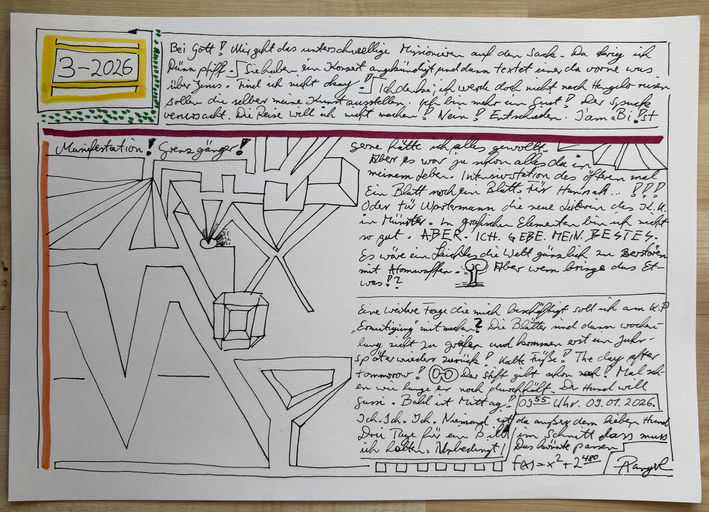 3-2026
Bei Gott! Mir geht das unterschwellige Missionieren auf den Sack. Da krieg ich
Dünnpfiff. Sie haben ein Konzert angekündigt und dann textet einer da vorne was
über Jesus. Find ich nicht okay. Ich denke, ich werde doch nicht nach Hengelo reisen
sollen die selber meine Kunst ausstellen. Ich bin mehr ein Gast! Der Spuck
verursacht. Die Reise will ich nicht machen! Nein! Entschieden. I am a Bi!st
Manifestation! Grenzgänger!
gerne hätte ich alles gewollt.
Aber es war ja schon alles da in
meinem Leben. des öfteren mal
Ein Blatt noch ein Blatt. Für Hannah... !???
Oder für die neue Leiterin des K.K.
in Münster. In grafischen Elementen bin ich nicht
so gut. ABER. ICH. GEBE. MEIN. BESTES.
Es wäre ein Leichtes die Welt gänzlich zu zerstören
mit Atomwaffen. Aber wem bringe das Et-
was!?
Eine weitere Frage die mich beschäftigt soll ich am K.P
"Ermutigung" mitmachen? Die Blätter sind dann
nicht zu greifen und kommen erst ein Jahr
später wieder zurück! Kalte Füße! The day after
tommorow! Der Stift gibt schon nach! Mal seh-
en wie lange er noch durchhält. Der Hund will
Gassi. Bald ist Mittag!
09 55 Uhr. 09.01.2026.
Ich. Ich. Ich. Niemand ist da außer dem lieben Hund
Drei Tage für ein Bild im Schnitt dass muss
ich halten. Unbedingt! Das könnte passen
f(x)=x²+2⁴⁸⁰